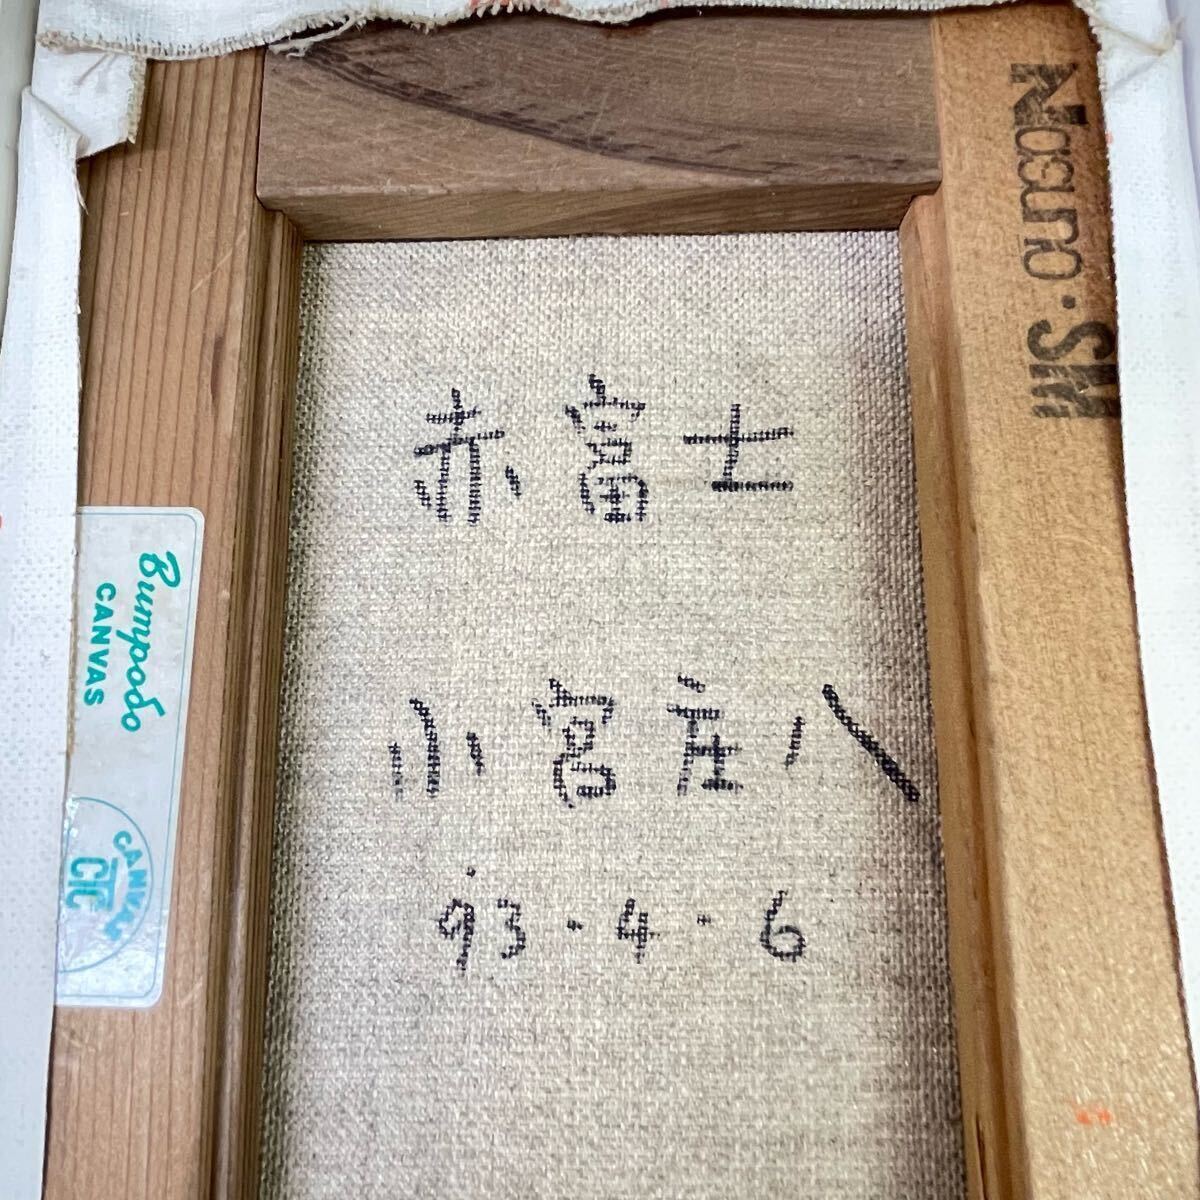 赤富士
小宮定八
'93・4・6
Bumpodo
CANVAS
CANVAS
CTC